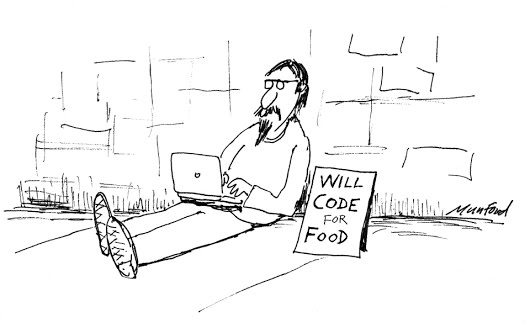 WILL
CODE
FOR
FOOD
Munford